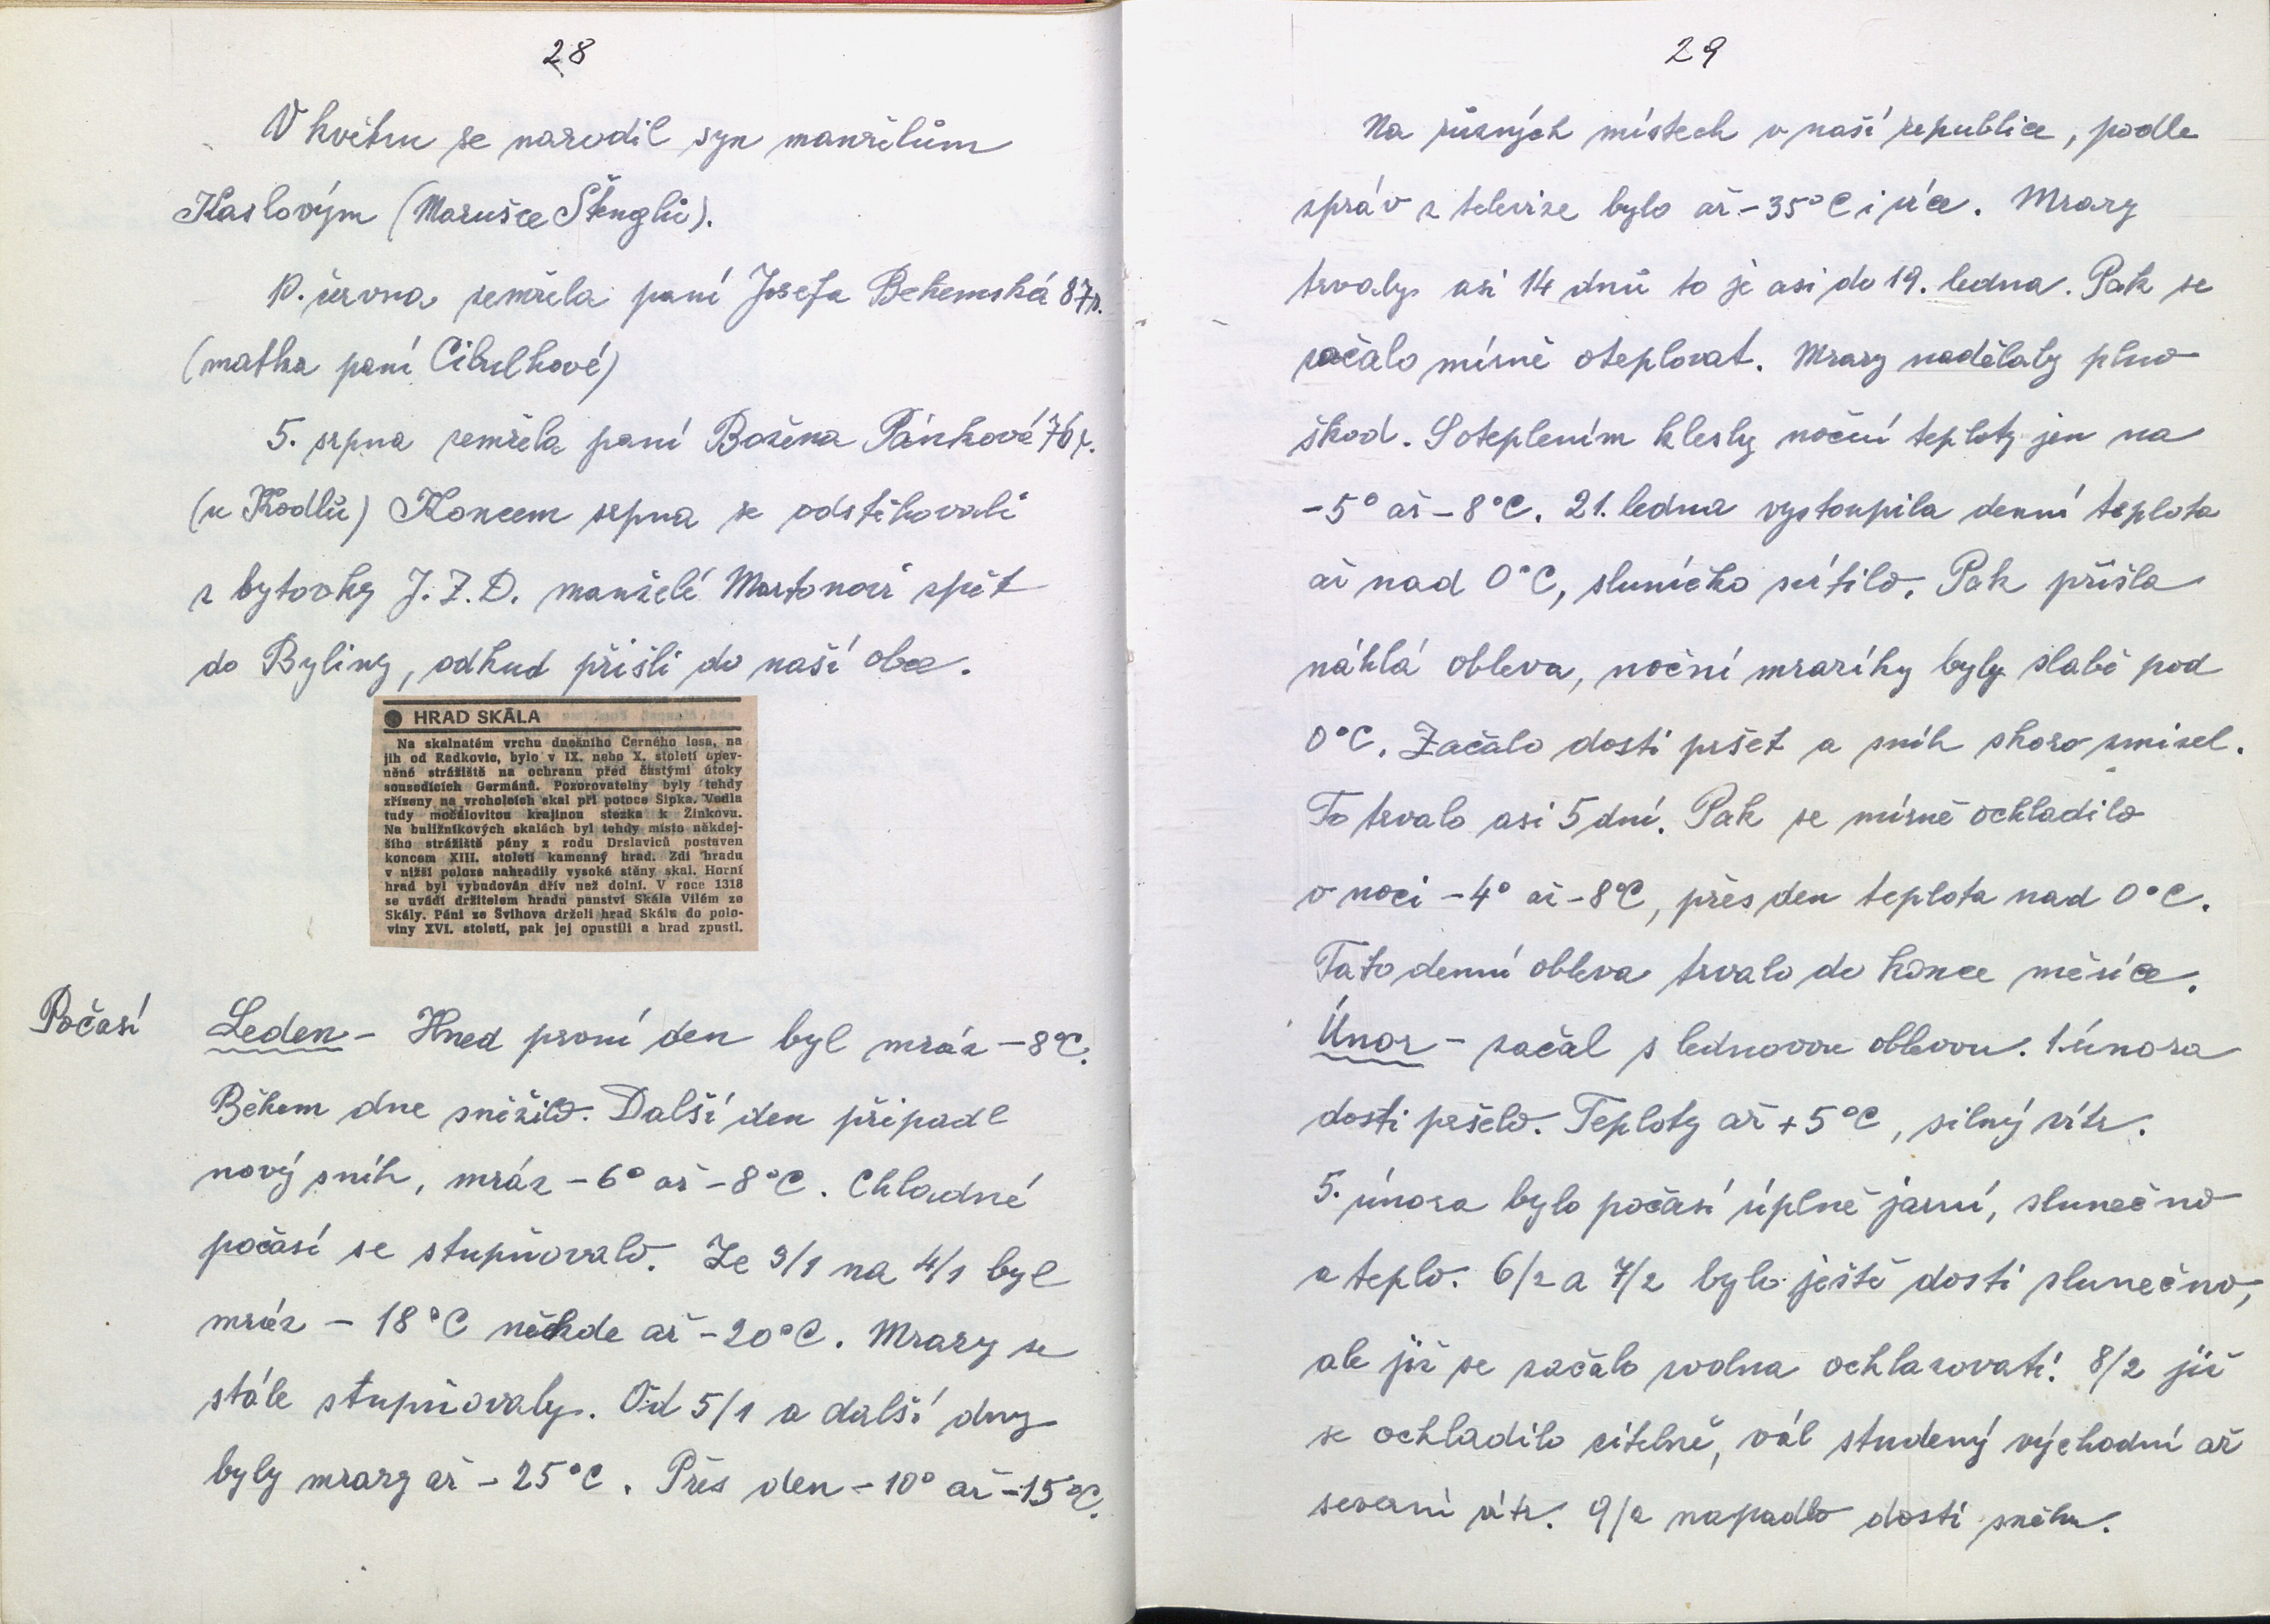 28
V květnu se narodil syn manželům
Kaslovým (Marušce Štenglů).
10. června zemřela paní Josefa Behenská 87r.
(matka paní Cibulkové)
5. srpna zemřela paní Božena Pánková 76r.
(u Kodlů) Koncem srpna se odstěhovali
z bytovky J.Z.D. manželé Martonovi zpět
do Byliny, odkud přišli do naší obce.
● HRAD SKÁLA
Na skalnatém vrchu dnešního Černého lesa, na
jih od Radkovic, bylo v IX. nebo X. století opev-
něné strážiště na ochranu před častými útoky
sousedících Germánů. Pozorovatelny byly tehdy
zřízeny na vrcholcích skal při potoce Šipka. Vedla
tudy močálovitou krajinou stezka k Žinkovu.
Na buližníkových skalách byl tehdy místo někdej-
šího strážiště pány z rodu Drslaviců postaven
koncem XIII. století kamenný hrad. Zdi hradu
v nižší poloze nahradily vysoké stěny skal. Horní
hrad byl vybudován dřív než dolní. V roce 1318
se uvádí držitelem hradu panství Skála Vilém ze
Skály. Páni ze Švihova drželi hrad Skálu do polo-
viny XVI. století, pak jej opustili a hrad zpustl.
Počasí
Leden - Hned první den byl mráz -8°C.
Během dne sněžilo. Další den připadl
nový sníh, mráz -6° až -8°C. Chladné
počasí se stupňovalo. Ze 3/1 na 4/1 byl
mráz - 18°C někde až -20°C. Mrazy se
stále stupňovaly. Od 5/1 a další dny
byly mrazy až - 25°C. Přes den - 10° až -15°C.
29
Na různých místech v naší republice, podle
zpráv z televize bylo až -35°C i více. Mrazy
trvaly asi 14 dnů to je asi do 19. ledna. Pak se
začalo mírně oteplovat. Mrazy nadělaly plno
škod. S oteplením klesly noční teploty jen na
-5° až -8°C. 21. ledna vystoupila denní teplota
až nad 0°C, sluníčko svítilo. Pak přišla
náhlá obleva, noční mrazíky byly slabě pod
0°C. Začalo dosti pršet a sníh skoro zmizel.
To trvalo asi 5 dní. Pak se mírně ochladilo
v noci -4° až -8°C, přes den teplota nad 0°C.
Tato denní obleva trvalo do konce měsíce.
Únor - začal s lednovou oblevou. 1. února
dosti pršelo. Teploty až +5°C, silný vítr.
5. února bylo počasí úplně jarní, slunečno
a teplo. 6/2 a 7/2 bylo ještě dosti slunečno,
ale již se začalo zvolna ochlazovati. 8/2 již
se ochladilo citelně, vál studený východní až
severní vítr. 9/2 napadlo dosti sněhu.